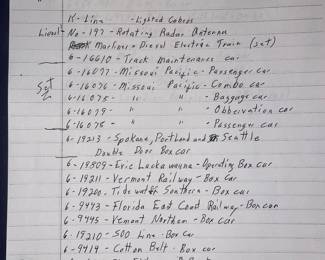 K-Line - Lighted Caboos
Lionel- No-197- Rotating Radar Antenna
Marlines - Diesel Electric Train (set)
6-16610 - Track Maintenance car
6-16077 - Missoui Pacific - Passenger car
Set 6-16076 - Missoui Pacific - Combo car
6-16075 - " " - Baggage car
6-16079 - " " - Obbervation car
6-16078 - " " - Passenger car
6-19213 - Spokane, Portland and Seattle
Double Door Box car
6-19809 - Erie Lackawanna - Operating Box car
6-19211 - Vermont Railway - Box car
6-19200 - Tidewater Southern - Box car
6-9443 - Florida East Coast Railway - Box car
6-9445 - Vemont Northen - Box car
6-19210 - SOO Line - Box car
6-9414 - Cotton Belt - Box car